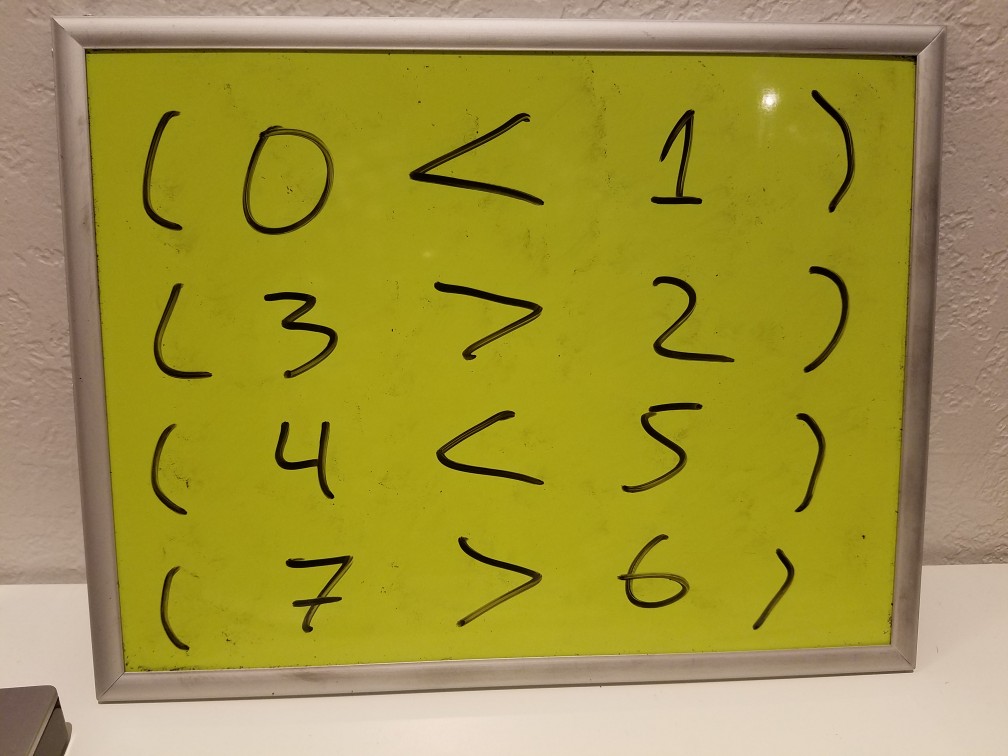 ( 0 < 1 )
( 3 > 2 )
( 4 < 5 )
( 7 > 6 )